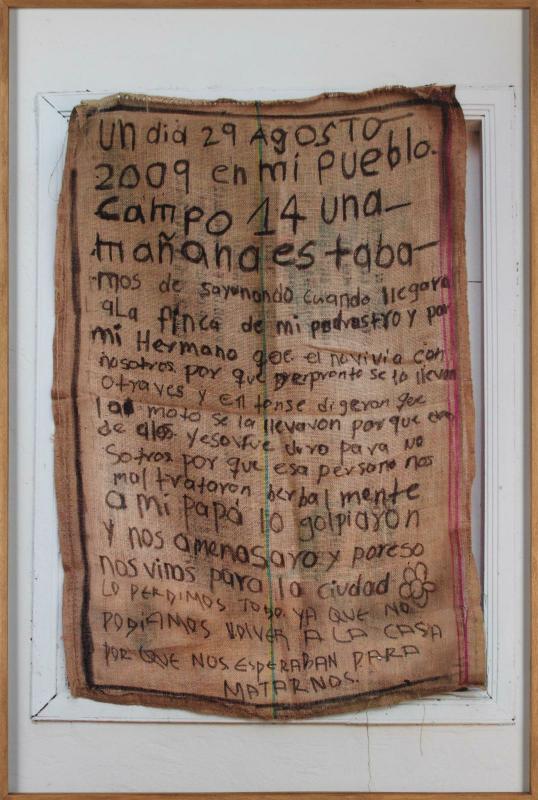 un dia 29 AgOSTO
2009 en mi pueblo.
campo 14 una
mañana es taba
mos de sayunando cuando llegaro
a La finca de mi padrastro y por
mi Hermano que el no vivia con
nosotros por que de pronto se lo llevan
otraves y en tonse digeron que
la moto se la llevavon por que era
de ellos. y eso fue duro para no
sotros por que esa persona nos
mal trataron berbal mente
a mi papá lo golpiaron
y nos amenasaro y por eso
nos vinos para la ciudad
LO PERDIMOS TODO. YA QUE NO
PODIAMOS VOLVER A LA CASA
POR QUE NOS ESPERABAN PARA
MATARNOS.